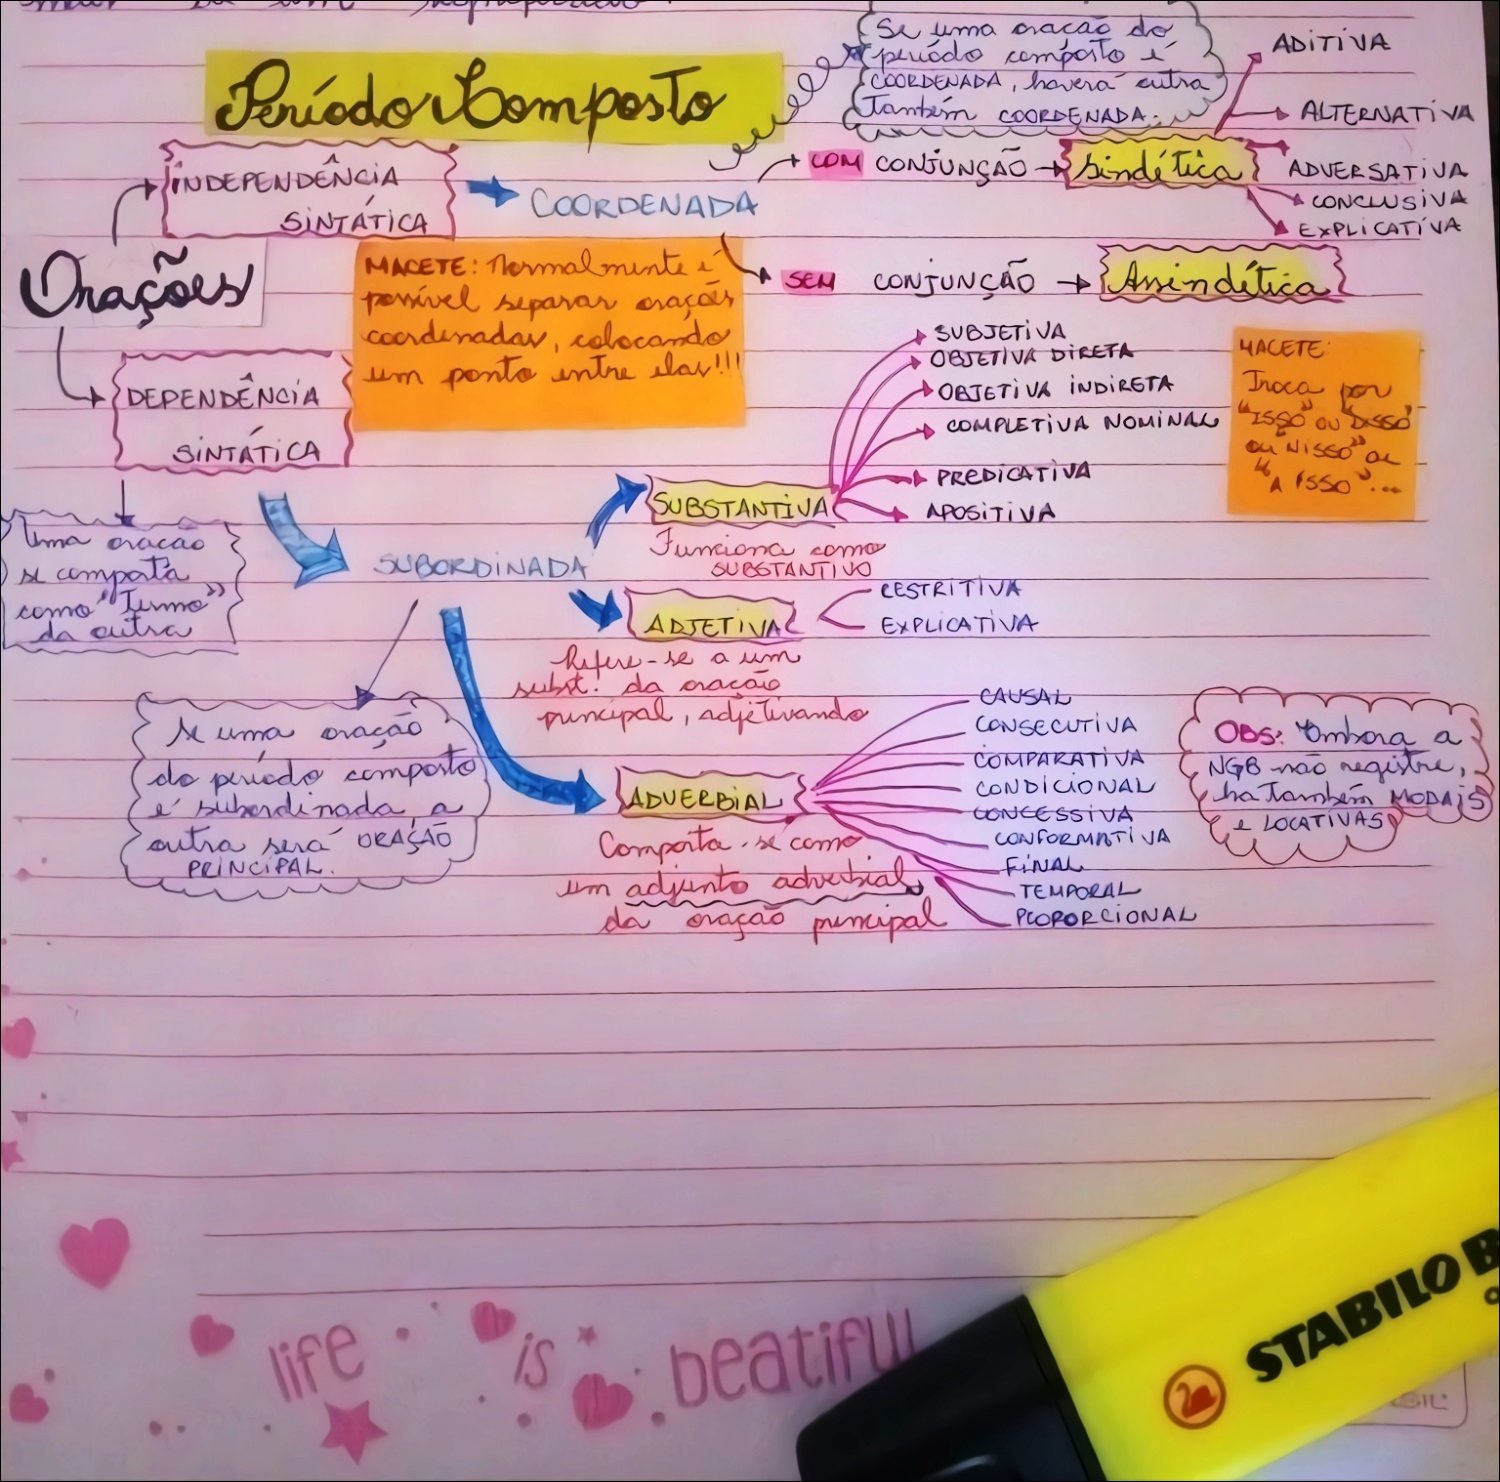 Período Composto
Se uma oração do
período composto é
COORDENADA, haverá outra
também COORDENADA.
INDEPENDÊNCIA
SINTÁTICA
COORDENADA
COM CONJUNÇÃO
Sindética
ADITIVA
ALTERNATIVA
ADVERSATIVA
CONCLUSIVA
EXPLICATIVA
SEM CONJUNÇÃO
Assindética
Orações
MACETE: Normalmente é
possível separar orações
coordenadas, colocando
um ponto entre elas!!!
DEPENDÊNCIA
SINTÁTICA
Uma oração
se comporta
como "Termo"
da outra
SUBORDINADA
SUBSTANTIVA
Funciona como
SUBSTANTIVO
SUBJETIVA
OBJETIVA DIRETA
OBJETIVA INDIRETA
COMPLETIVA NOMINAL
PREDICATIVA
APOSITIVA
MACETE:
Troca por
"ISSO" ou "DISSO"
ou "NISSO" ou
"A ISSO"...
ADJETIVA
Refere-se a um
subst. da oração
principal, adjetivando
RESTRITIVA
EXPLICATIVA
Se uma oração
do período composto
é subordinada, a
outra será ORAÇÃO
PRINCIPAL.
ADVERBIAL
Comporta-se como
um adjunto adverbial
da oração principal
CAUSAL
CONSECUTIVA
COMPARATIVA
CONDICIONAL
CONCESSIVA
CONFORMATIVA
FINAL
TEMPORAL
PROPORCIONAL
OBS: Embora a
NGB não registre,
há também MODAIS
e LOCATIVAS
life is beatiful
STABILO B